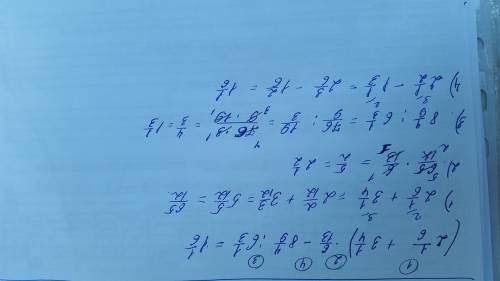 (2 1/6 + 3 1/4) · 6/13 − 8 4/9 : 6 1/3 = 1 1/6
1) 2 1/6 + 3 1/4 = 2 2/12 + 3 3/12 = 5 5/12 = 65/12
2) 65/12 · 6/13 = 5/2 = 2 1/2
3) 8 4/9 : 6 1/3 = 76/9 : 19/3 = 76 · 3 / 9 · 19 = 4/3 = 1 1/3
4) 2 1/2 − 1 1/3 = 2 3/6 − 1 2/6 = 1 1/6